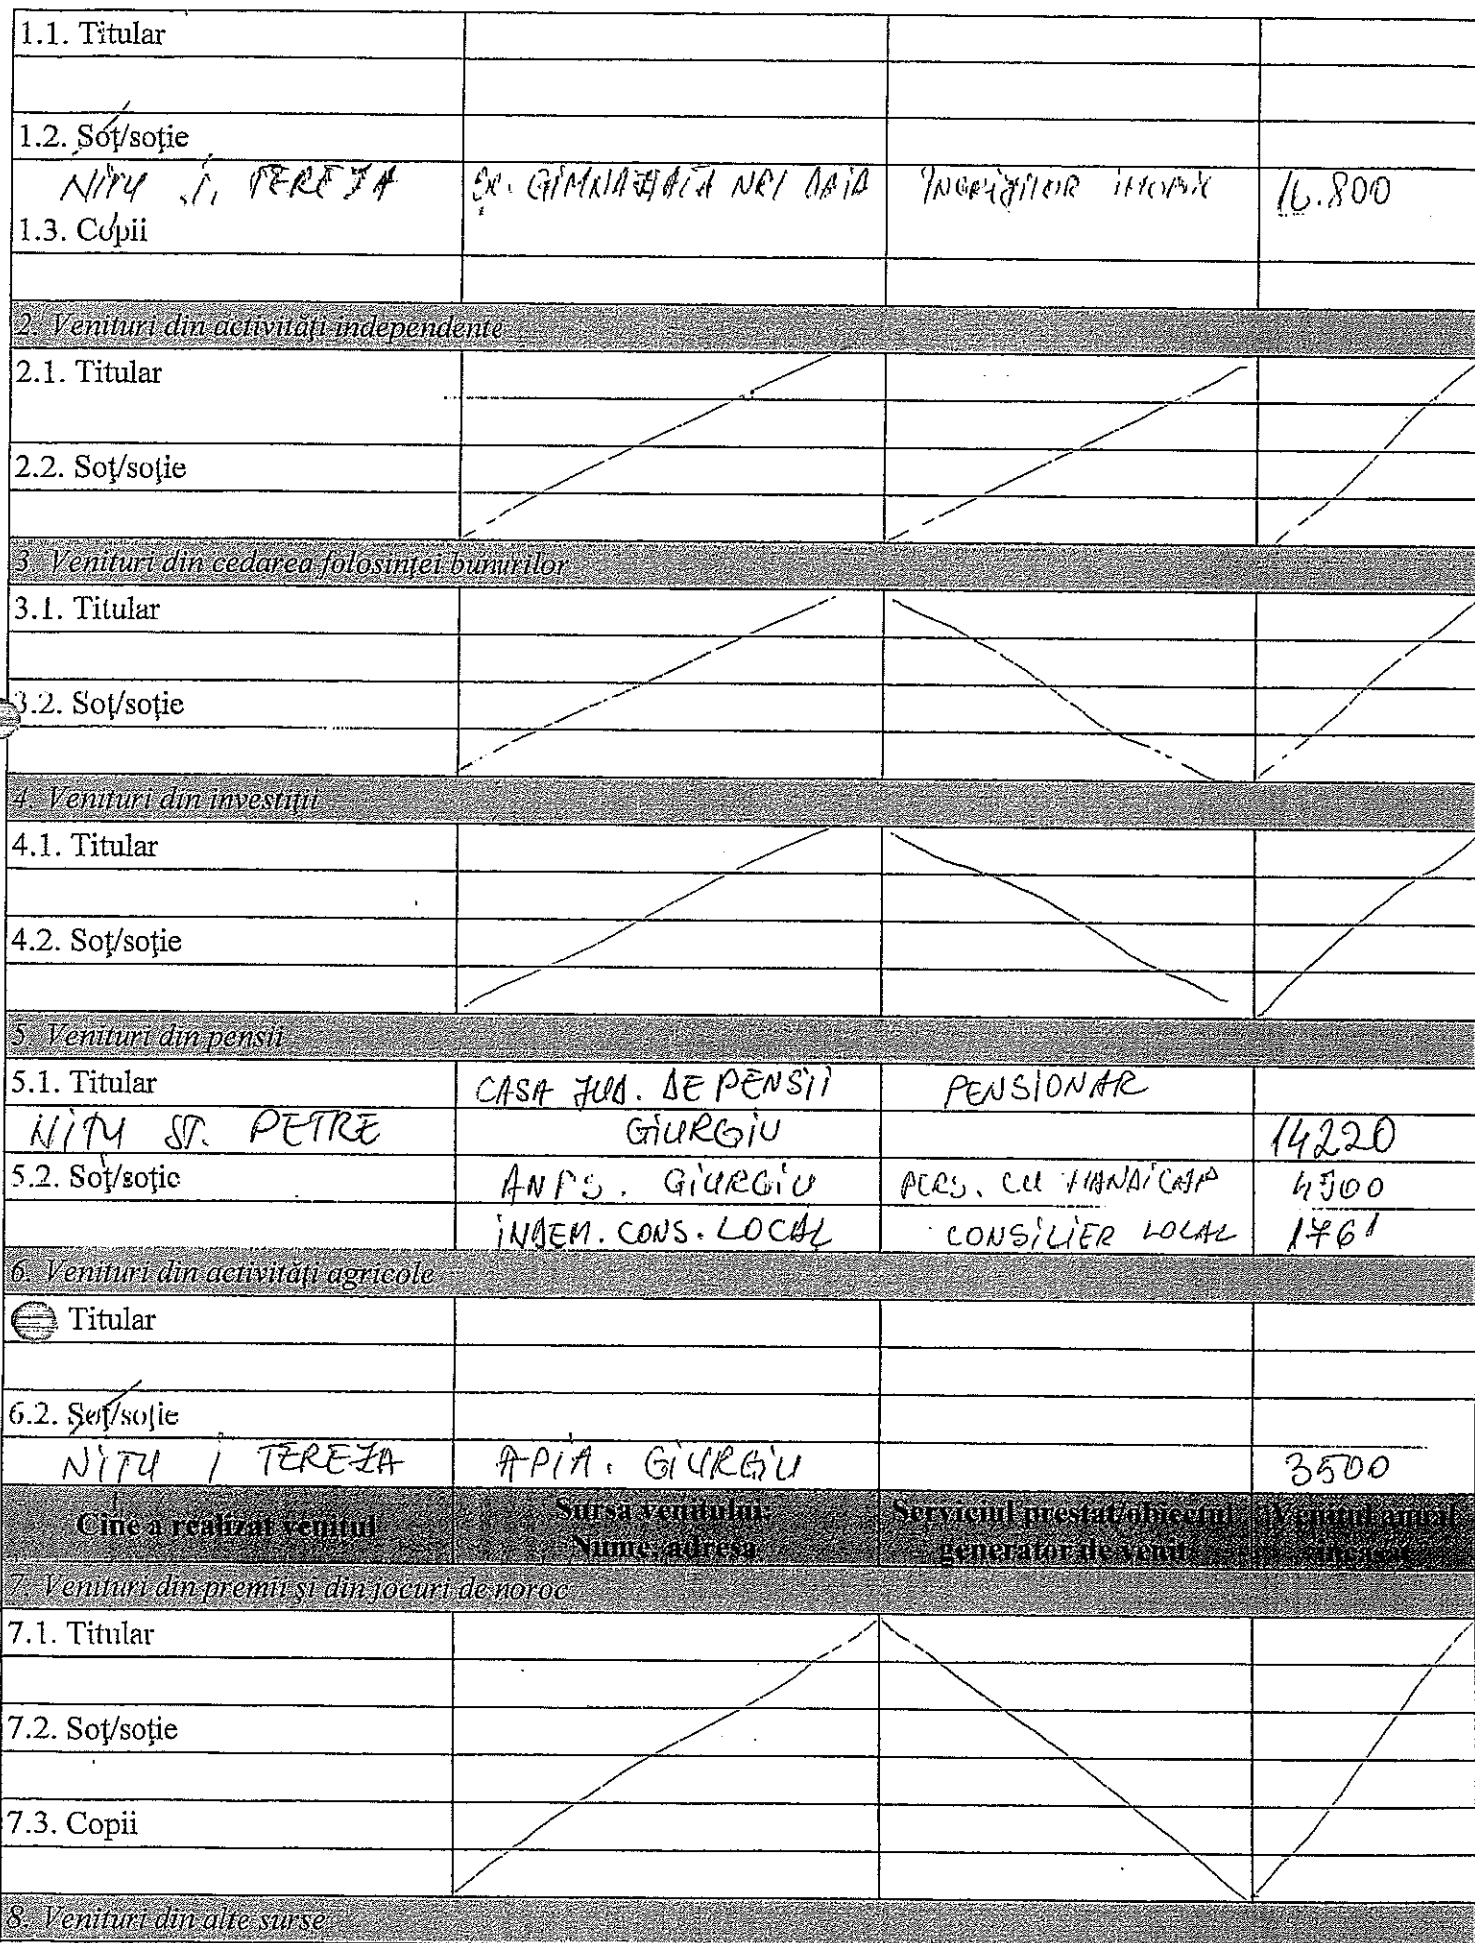 1.1. Titular
1.2. Soţ/soţie
NIŢU I. TEREZA GIMNAZIALĂ NR1 DAIA 16.800
1.3. Copii
2. Venituri din activităţi independente
2.1. Titular
2.2. Soţ/soţie
3. Venituri din cedarea folosinţei bunurilor
3.1. Titular
3.2. Soţ/soţie
4. Venituri din investiţii
4.1. Titular
4.2. Soţ/soţie
5. Venituri din pensii
5.1. Titular CASA JUD. DE PENSII PENSIONAR
NIŢU ST. PETRE GIURGIU 14220
5.2. Soţ/soţie GIURGIU PERS. CU HANDICAP 4500
INDEM. CONS. LOCAL CONSILIER LOCAL 1761
6. Venituri din activităţi agricole
Titular
6.2. Soţ/soţie
NIŢU I TEREZA APIA. GIURGIU 3500
Cine a realizat venitul Sursa venitului: Serviciul prestat/obiectul Venitul anual
Nume, adresa generator de venit încasat
7. Venituri din premii şi din jocuri de noroc
7.1. Titular
7.2. Soţ/soţie
7.3. Copii
8. Venituri din alte surse